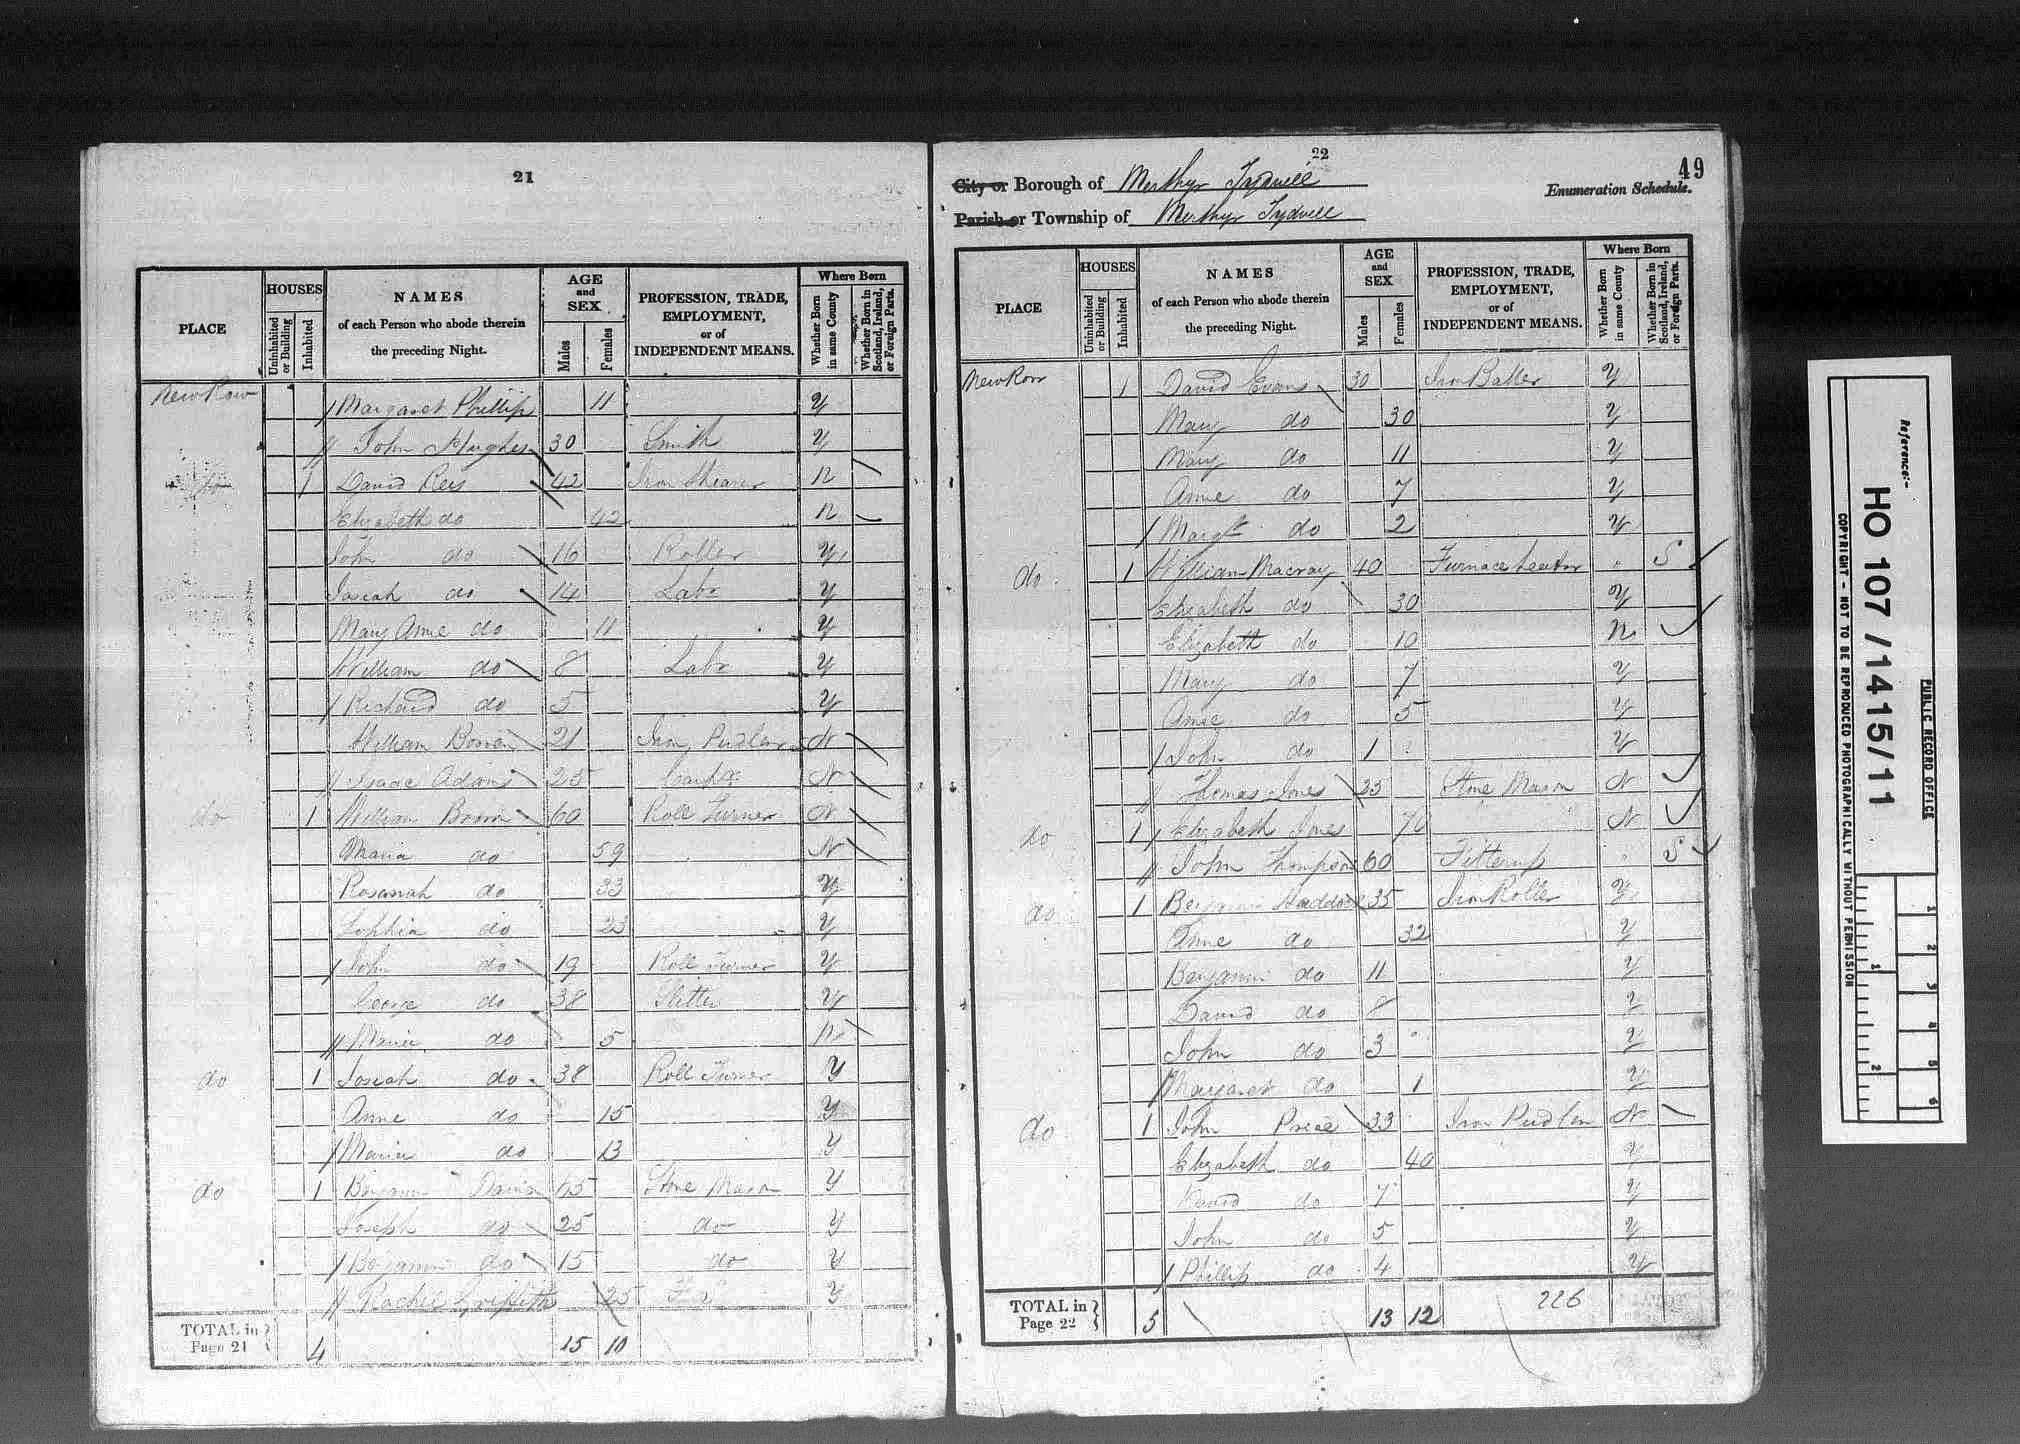 21
PLACE
HOUSES
Uninhabited or Building
Inhabited
NAMES
of each Person who abode therein
the preceding Night.
AGE
and
SEX
Males
Females
PROFESSION, TRADE,
EMPLOYMENT,
or of
INDEPENDENT MEANS.
Where Born
Whether Born in same County
Whether Born in Scotland, Ireland, or Foreign Parts.
New Row Margaret Phillip 11 Y
John Hughes 30 Smith Y
do 1 David Rees 42 Iron Shearer N
Elizabeth do 42 N
John do 16 Roller Y
Josiah do 14 Labr Y
Mary Anne do 11 Y
William do 8 Labr Y
Richard do 5 Y
William Bowen 21 Iron Pudler N
Isaac Adams 25 N
do 1 William Brown 60 Roll Turner N
Maria do 59 N
Rosanah do 33 Y
Sophia do 23 Y
John do 19 Roll Turner Y
George do 38 Y
Maria do 5 N
do 1 Josiah do 38 Roll Turner Y
Anne do 15 Y
Maria do 13 Y
do 1 Benjamin Davis 65 Stone Mason Y
Joseph do 25 do Y
Benjamin do 15 do Y
Griffiths 25 Y
TOTAL in
Page 21 4 15 10
22
49
City or Borough of Merthyr Tydvill
Enumeration Schedule.
Parish or Township of Merthyr Tydvill
PLACE
HOUSES
Uninhabited or Building
Inhabited
NAMES
of each Person who abode therein
the preceding Night.
AGE
and
SEX
Males
Females
PROFESSION, TRADE,
EMPLOYMENT,
or of
INDEPENDENT MEANS.
Where Born
Whether Born in same County
Whether Born in Scotland, Ireland, or Foreign Parts.
New Row 1 David Evans 30 Iron Baller Y
Mary do 30 Y
Mary do 11 Y
Anne do 7 Y
Margt do 2 Y
do 1 William Macray 40 Furnace " S
Elizabeth do 30 Y
Elizabeth do 10 N
Mary do 7 Y
Anne do 5 Y
John do 1 Y
Thomas Jones 25 Stone Mason N
do 1 Elizabeth Jones 70 N
John Thompson 60 Fitterup " S
do 1 Benjamin Haddock 35 Iron Roller Y
Anne do 32 Y
Benjamin do 11 Y
David do 8 Y
John do 3 Y
Margaret do 1 Y
do 1 John Price 33 Iron Pudler N
Elizabeth do 40 Y
David do 7 Y
John do 5 Y
Phillip do 4 Y
TOTAL in
Page 22 5 13 12
226
Reference:-
HO 107 /1415/11
PUBLIC RECORD OFFICE
COPYRIGHT - NOT TO BE REPRODUCED PHOTOGRAPHICALLY WITHOUT PERMISSION
1 2 3 4 5 6
1 2